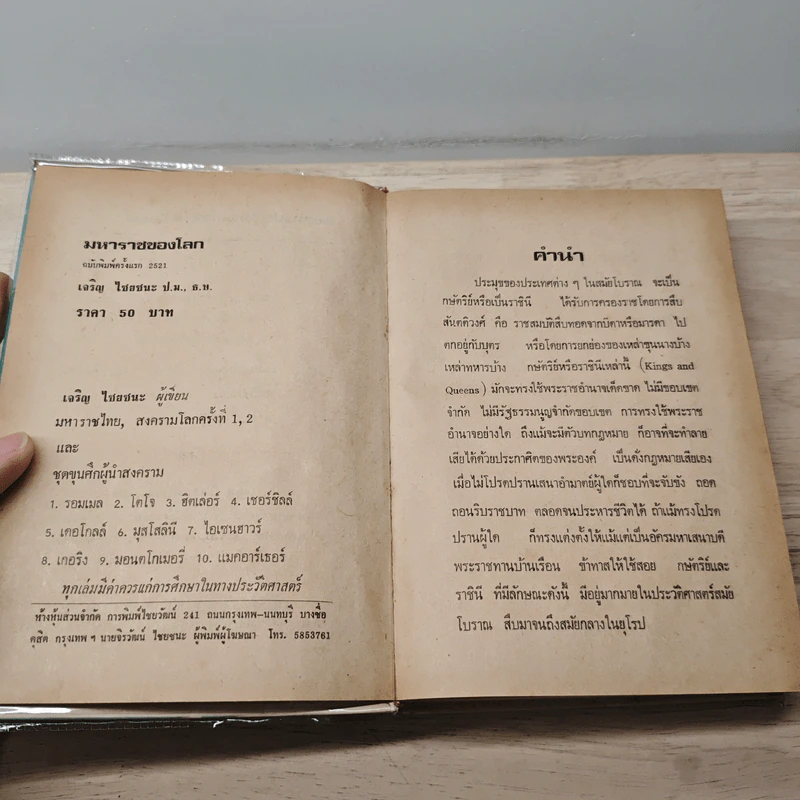 มหาราชของโลก
ฉบับพิมพ์ครั้งแรก 2521
เจริญ ไชยชนะ ป.ม., ธ.บ.
ราคา 50 บาท
เจริญ ไชยชนะ ผู้เขียน
มหาราชไทย, สงครามโลกครั้งที่ 1, 2
และ
ชุดขุนศึกผู้นำสงคราม
1. รอมเมล 2. โตโจ 3. ฮิตเล่อร์ 4. เชอร์ชิลล์
5. เดอโกลล์ 6. มุสโสลินี 7. ไอเซนฮาวร์
8. เกอริง 9. มอนตโกเมอรี่ 10. แมคอาร์เธอร์
ทุกเล่มมีค่าควรแก่การศึกษาในทางประวัติศาสตร์
ห้างหุ้นส่วนจำกัด การพิมพ์ไชยวัฒน์ 241 ถนนกรุงเทพ-นนทบุรี บางซื่อ
ดุสิต กรุงเทพ ฯ นายจิรวัฒน์ ไชยชนะ ผู้พิมพ์ผู้โฆษณา โทร. 5853761
คำนำ
ประมุขของประเทศต่าง ๆ ในสมัยโบราณ จะเป็น
กษัตริย์หรือเป็นราชินี ได้รับการครองราชโดยการสืบ
สันตติวงศ์ คือ ราชสมบัติสืบทอดจากบิดาหรือมารดา ไป
ตกอยู่กับบุตร หรือโดยการยกย่องของเหล่าขุนนางบ้าง
เหล่าทหารบ้าง กษัตริย์หรือราชินีเหล่านี้ (Kings and
Queens) มักจะทรงใช้พระราชอำนาจเด็ดขาด ไม่มีขอบเขต
จำกัด ไม่มีรัฐธรรมนูญจำกัดขอบเขต การทรงใช้พระราช
อำนาจอย่างใด ถึงแม้จะมีตัวบทกฎหมาย ก็อาจที่จะทำลาย
เสียได้ด้วยประกาศิตของพระองค์ เป็นดั่งกฎหมายเสียเอง
เมื่อไม่โปรดปรานเสนาอำมาตย์ผู้ใดก็ชอบที่จะจับขัง ถอด
ถอนริบราชบาท ตลอดจนประหารชีวิตได้ ถ้าแม้ทรงโปรด
ปรานผู้ใด ก็ทรงแต่งตั้งให้แม้แต่เป็นอัครมหาเสนาบดี
พระราชทานบ้านเรือน ข้าทาสให้ใช้สอย กษัตริย์และ
ราชินี ที่มีลักษณะดังนี้ มีอยู่มากมายในประวัติศาสตร์สมัย
โบราณ สืบมาจนถึงสมัยกลางในยุโรป